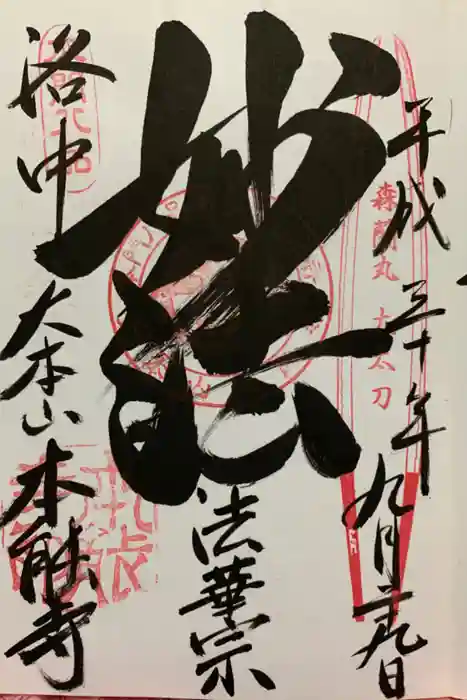 平成三十年九月二九日
森蘭丸 大太刀
妙法
法華宗
洛中
大本山 本能寺